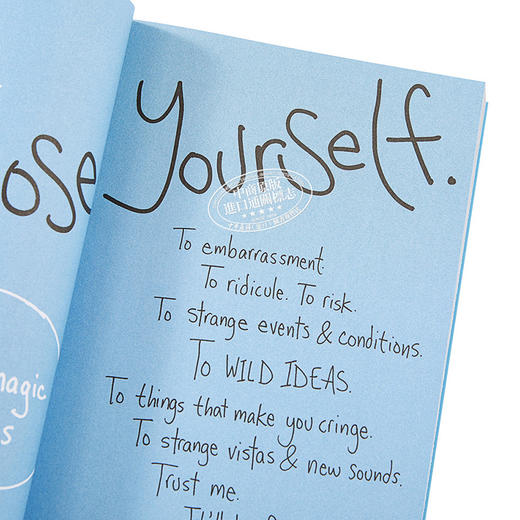 ose Yourself.
To embarrassment.
To ridicule. To risk.
To strange events & conditions.
To WILD IDEAS.
To things that make you cringe.
To strange vistas & new sounds.
Trust me.
magic
s
中商原版
進口通關標志